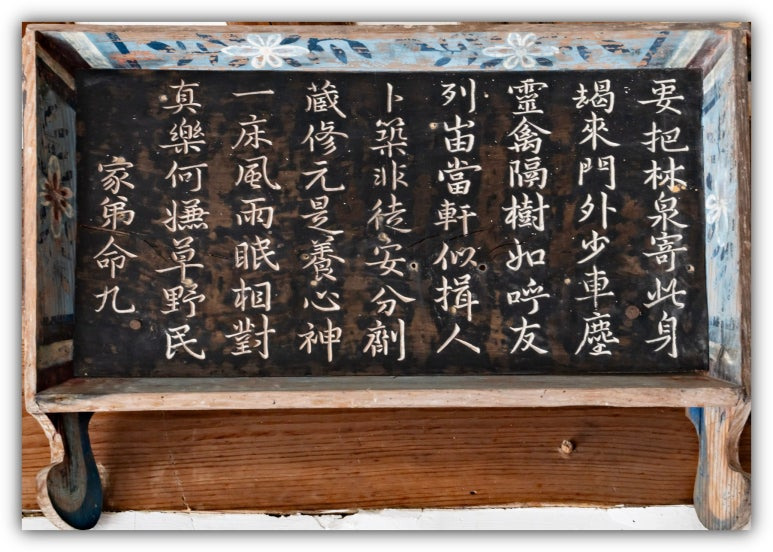 要把林泉寄此身
朅來門外少車塵
靈禽隔樹如呼友
列峀當軒似揖人
卜築非徒安分劑
蔵修元是養心神
一床風雨眠相對
真樂何嫌草野民
家弟命九